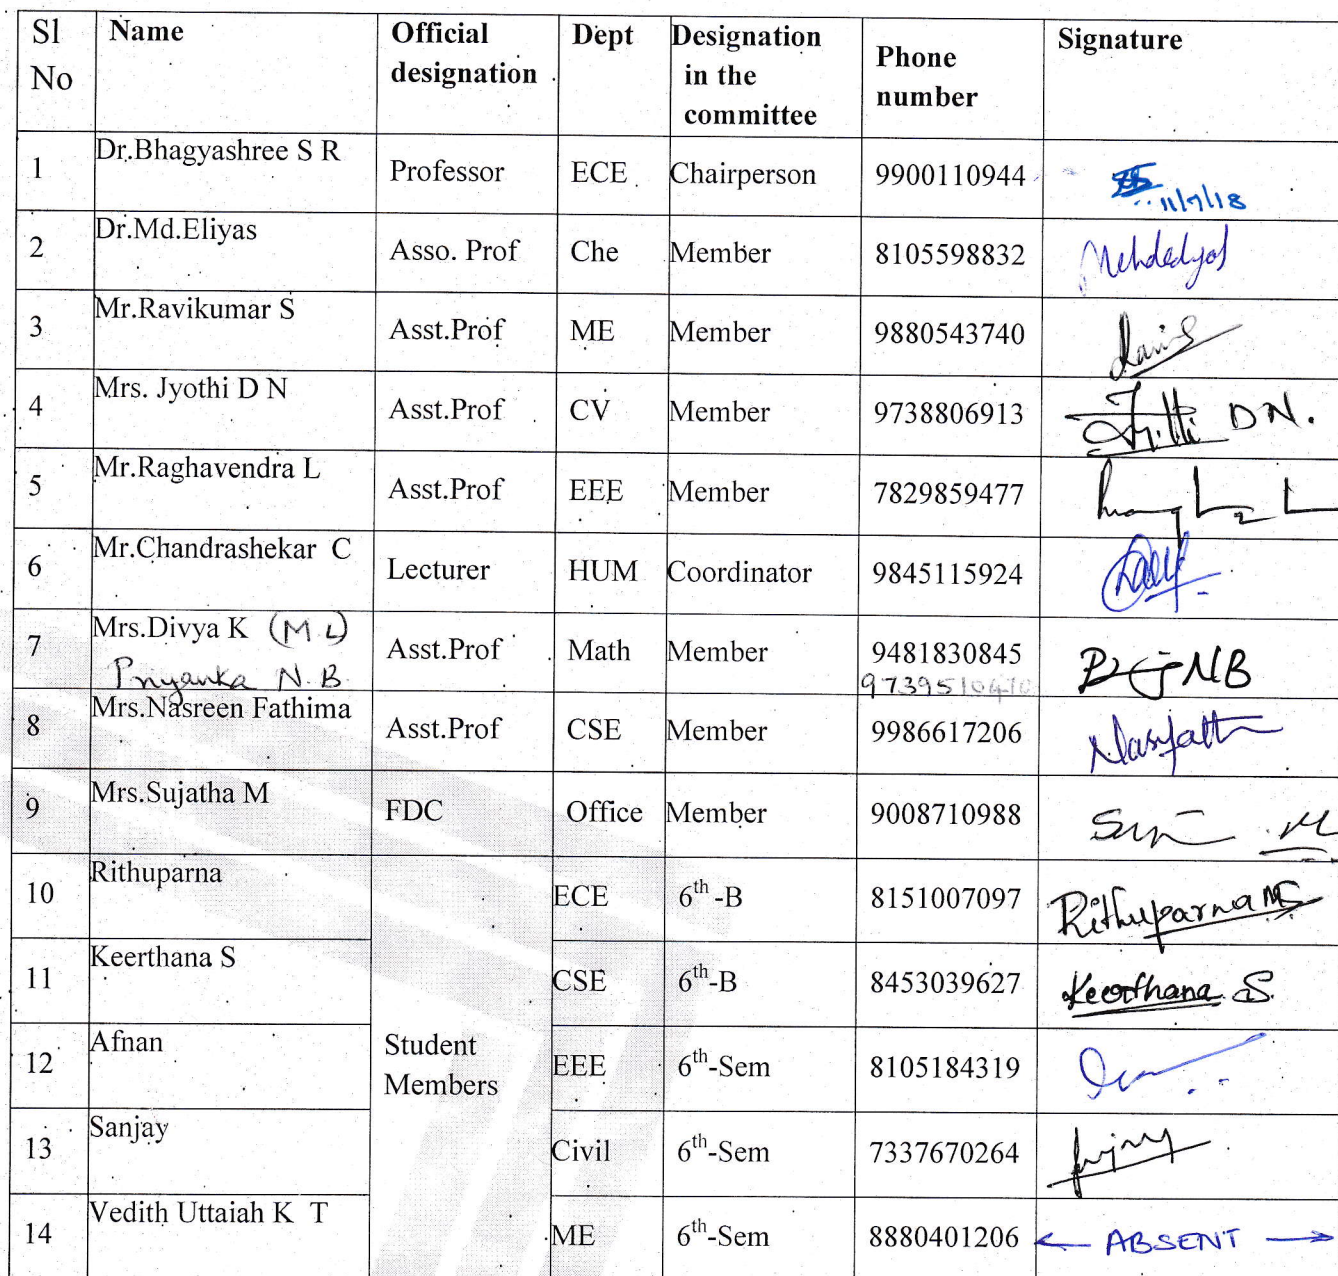 Sl No Name Official designation Dept Designation in the committee Phone number Signature
1 Dr.Bhagyashree S R Professor ECE Chairperson 9900110944 11/7/18
2 Dr.Md.Eliyas Asso. Prof Che Member 8105598832
3 Mr.Ravikumar S Asst.Prof ME Member 9880543740
4 Mrs. Jyothi D N Asst.Prof CV Member 9738806913 D N.
5 Mr.Raghavendra L Asst.Prof EEE Member 7829859477
6 Mr.Chandrashekar C Lecturer HUM Coordinator 9845115924
7 Mrs.Divya K (M L) Asst.Prof Math Member 9481830845 NB
Priyanka N.B 9739510410
8 Mrs.Nasreen Fathima Asst.Prof CSE Member 9986617206
9 Mrs.Sujatha M FDC Office Member 9008710988
10 Rithuparna ECE 6th -B 8151007097 Rithuparna
11 Keerthana S CSE 6th-B 8453039627 Keerthana S.
12 Afnan Student Members EEE 6th-Sem 8105184319
13 Sanjay Civil 6th-Sem 7337670264
14 Vedith Uttaiah K T ME 6th-Sem 8880401206 ← ABSENT →